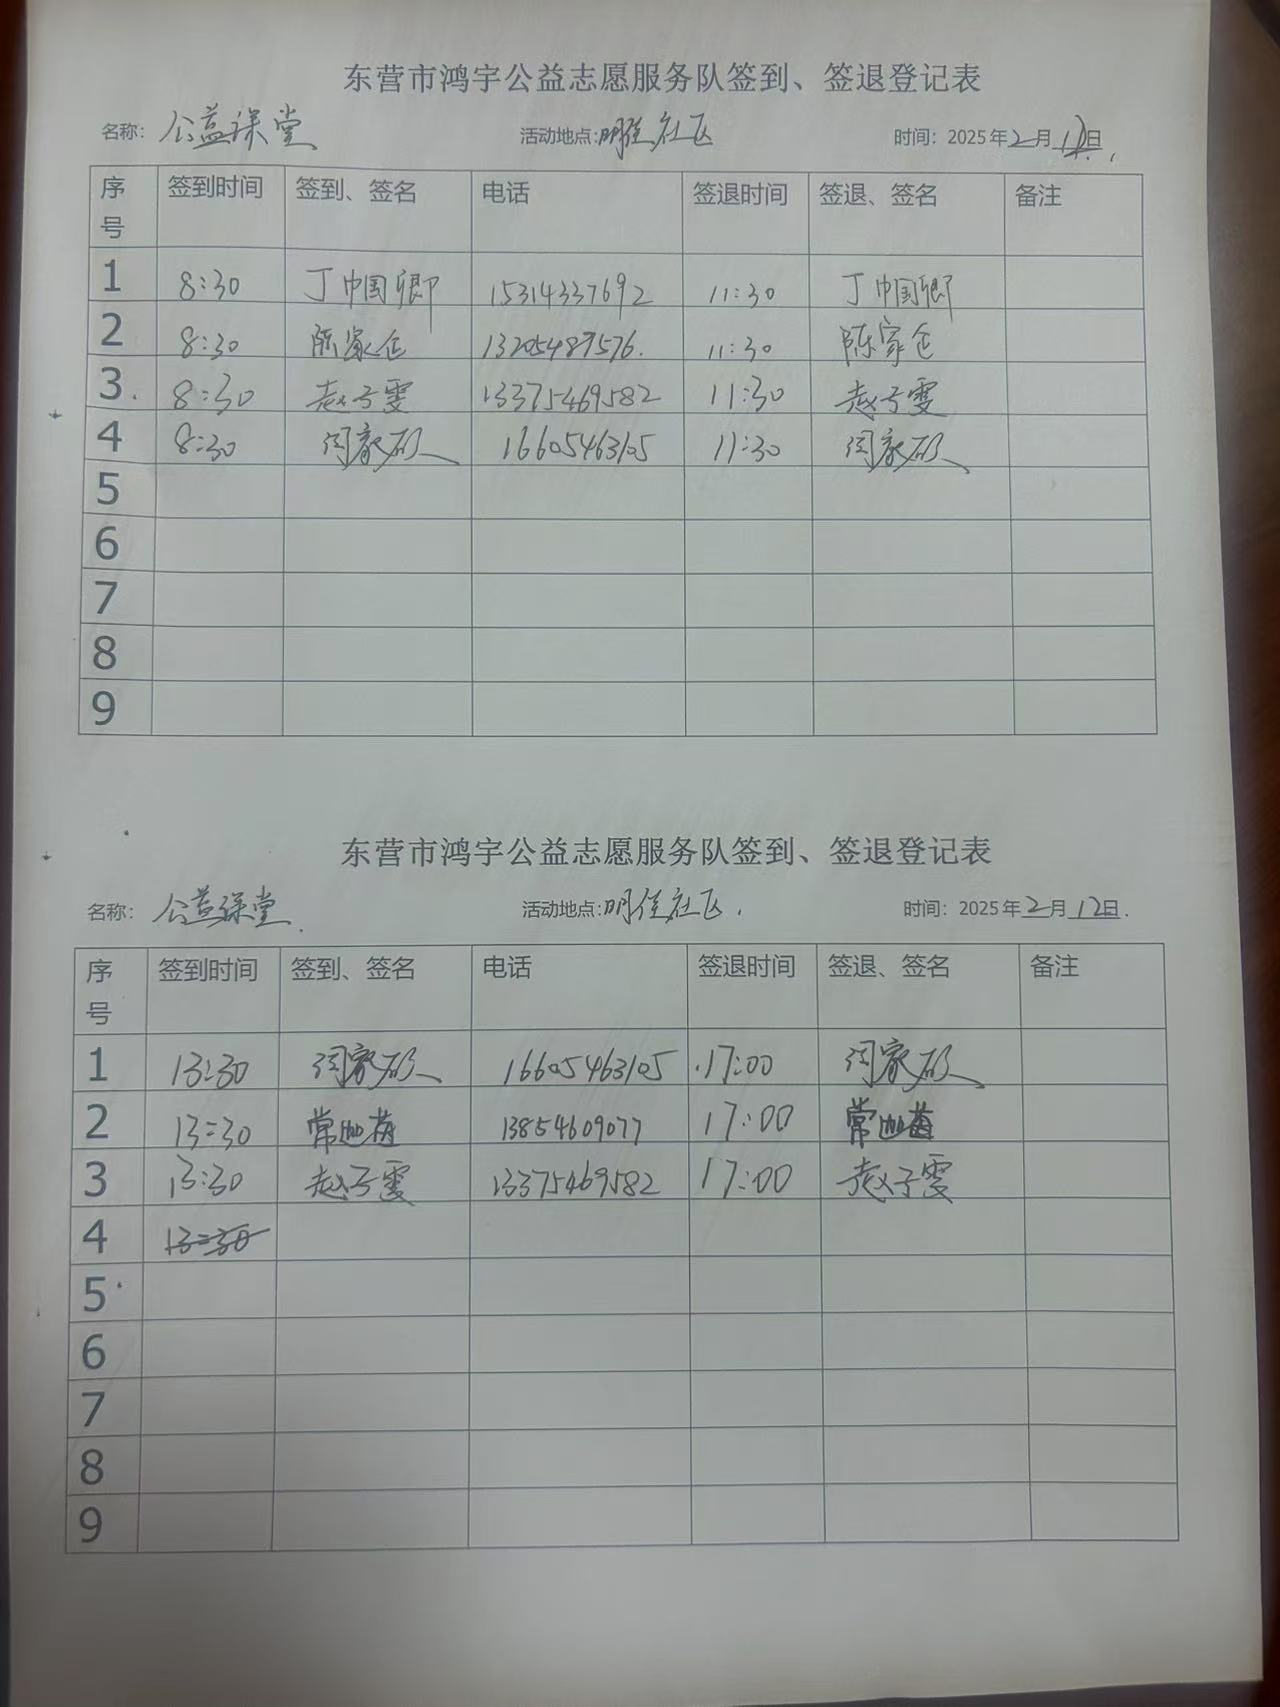 东营市鸿宇公益志愿服务队签到、签退登记表
名称: 公益课堂 活动地点:明佳社区 时间: 2025年2月12日
序号 签到时间 签到、签名 电话 签退时间 签退、签名 备注
1 8:30 丁中国卿 15314337692 11:30 丁中国卿
2 8:30 陈家仓 13205489576. 11:30 陈家仓
3 8:30 赵子雯 13375469582 11:30 赵子雯
4 8:30 闫家硕 16605463105 11:30 闫家硕
5
6
7
8
9
东营市鸿宇公益志愿服务队签到、签退登记表
名称: 公益课堂 活动地点:明佳社区. 时间: 2025年2月12日.
序号 签到时间 签到、签名 电话 签退时间 签退、签名 备注
1 13:30 闫家硕 16605463105 17:00 闫家硕
2 13:30 常 13854609077 17:00 常
3 13:30 赵子雯 13375469582 17:00 赵子雯
4 13:30
5
6
7
8
9